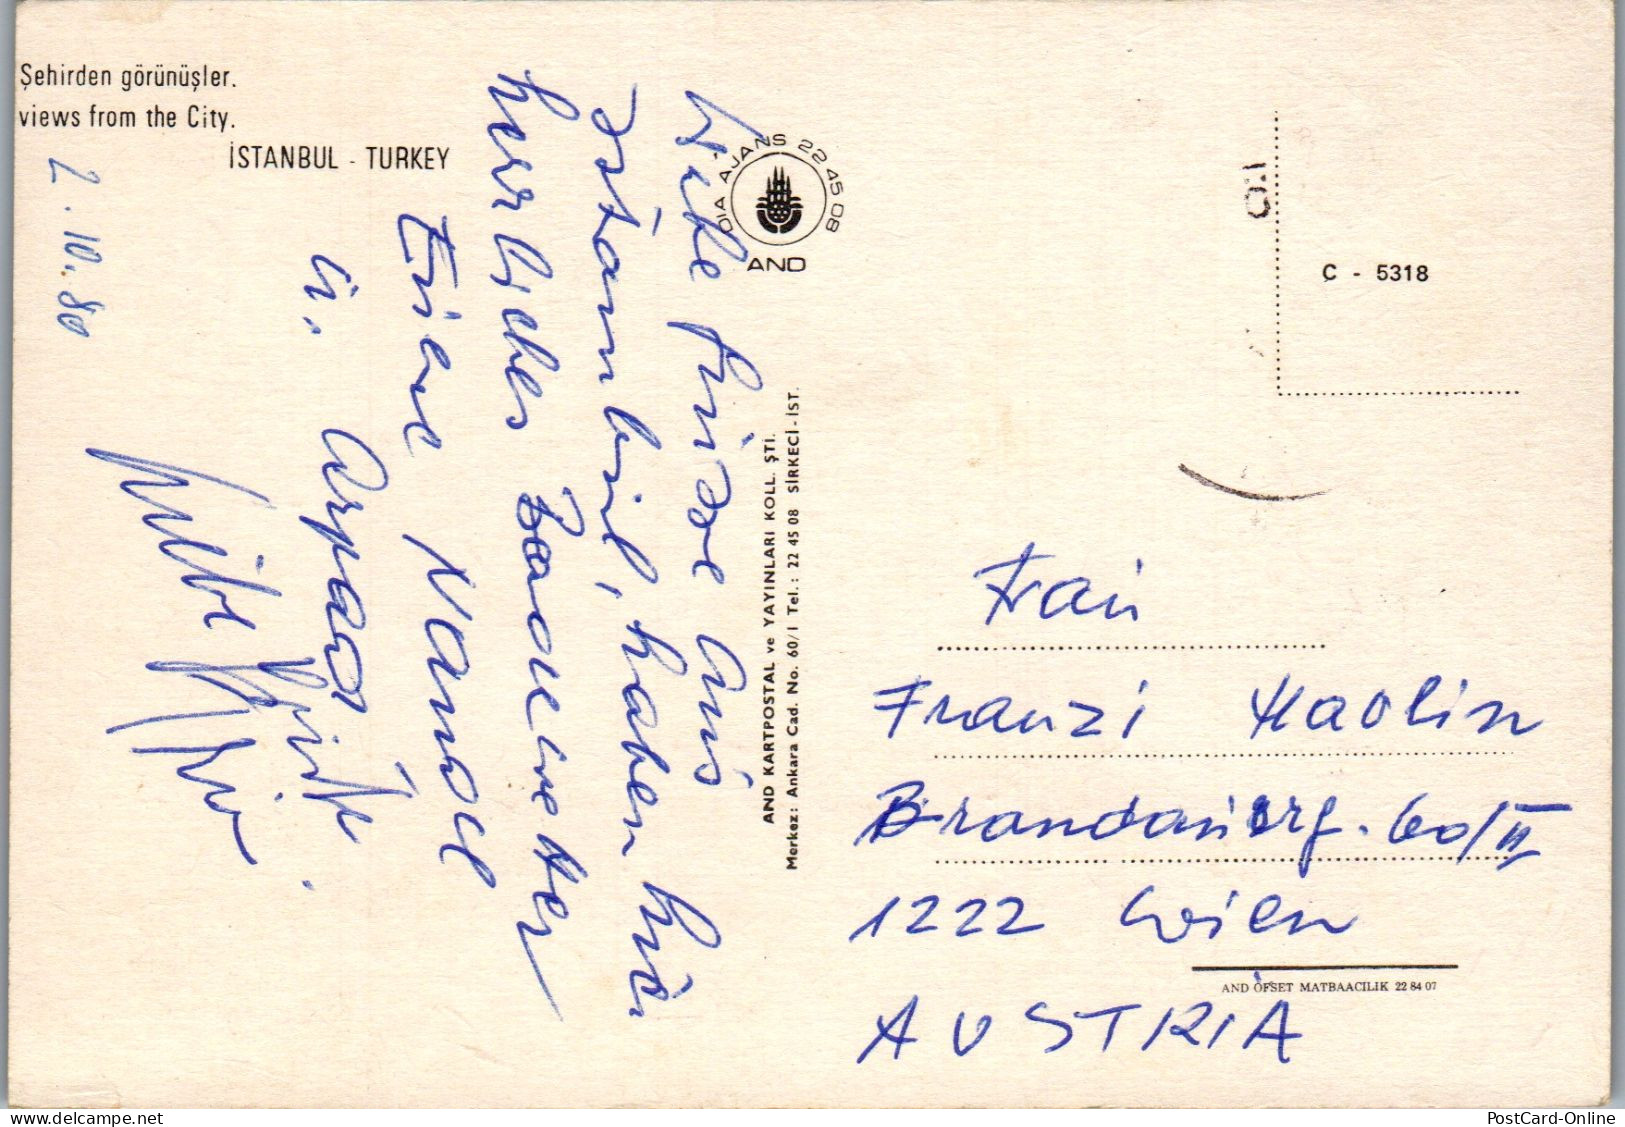 Şehirden görünüşler.
views from the City.
İSTANBUL - TURKEY
2.10.80
Liebe Grüsse aus
Istambul, haben hier
herrliches Badewetter
Eure Nandl
u. Arpad
Liebe Grüße
DIA AJANS 22 45 08
AND
AND KARTPOSTAL ve YAYINLARI KOLL. ŞTI.
Merkez: Ankara Cad. No. 60/1 Tel.: 22 45 08 SİRKECİ-İST.
C - 5318
Frau
Franzi Haolin
Brandauerg. 60/II
1222 Wien
AUSTRIA
AND OFSET MATBAACILIK 22 84 07
delcampe.net
PostCard-Online